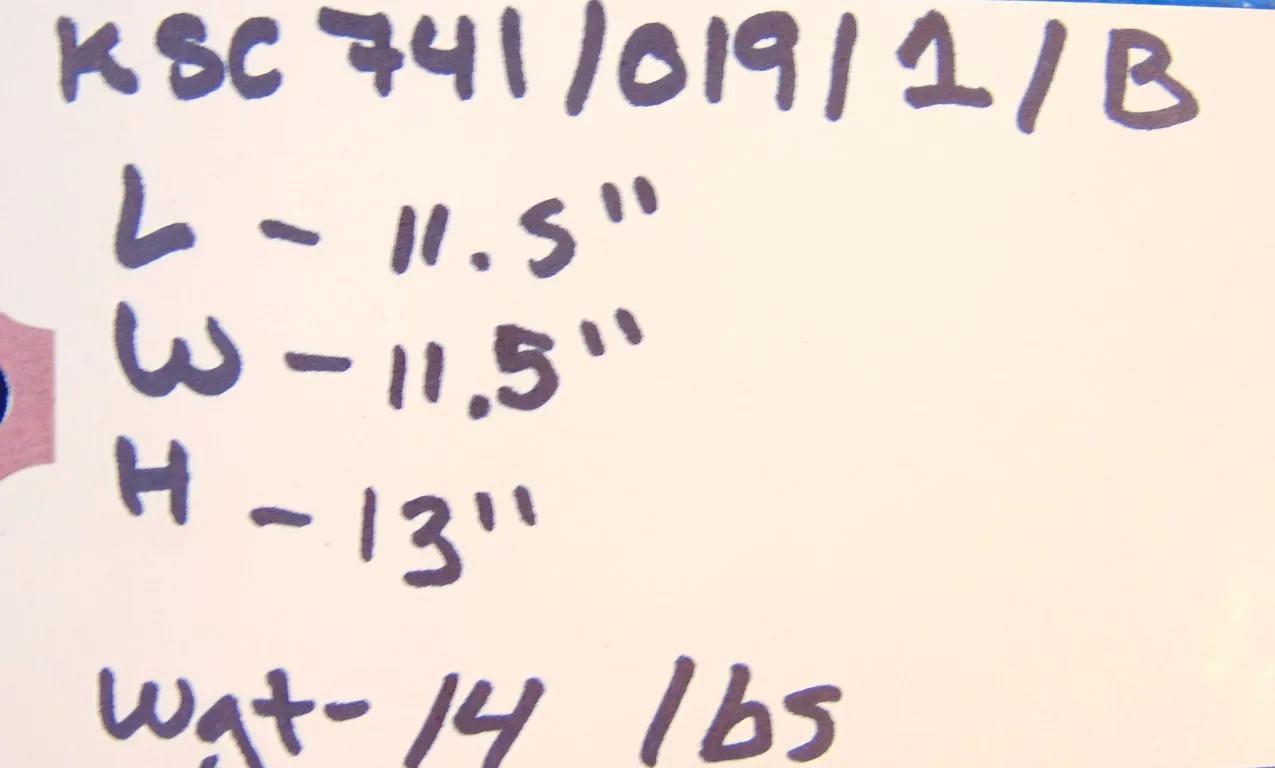 KSC 741/019/1/B
L - 11.5"
W - 11.5"
H - 13"
Wgt- 14 lbs